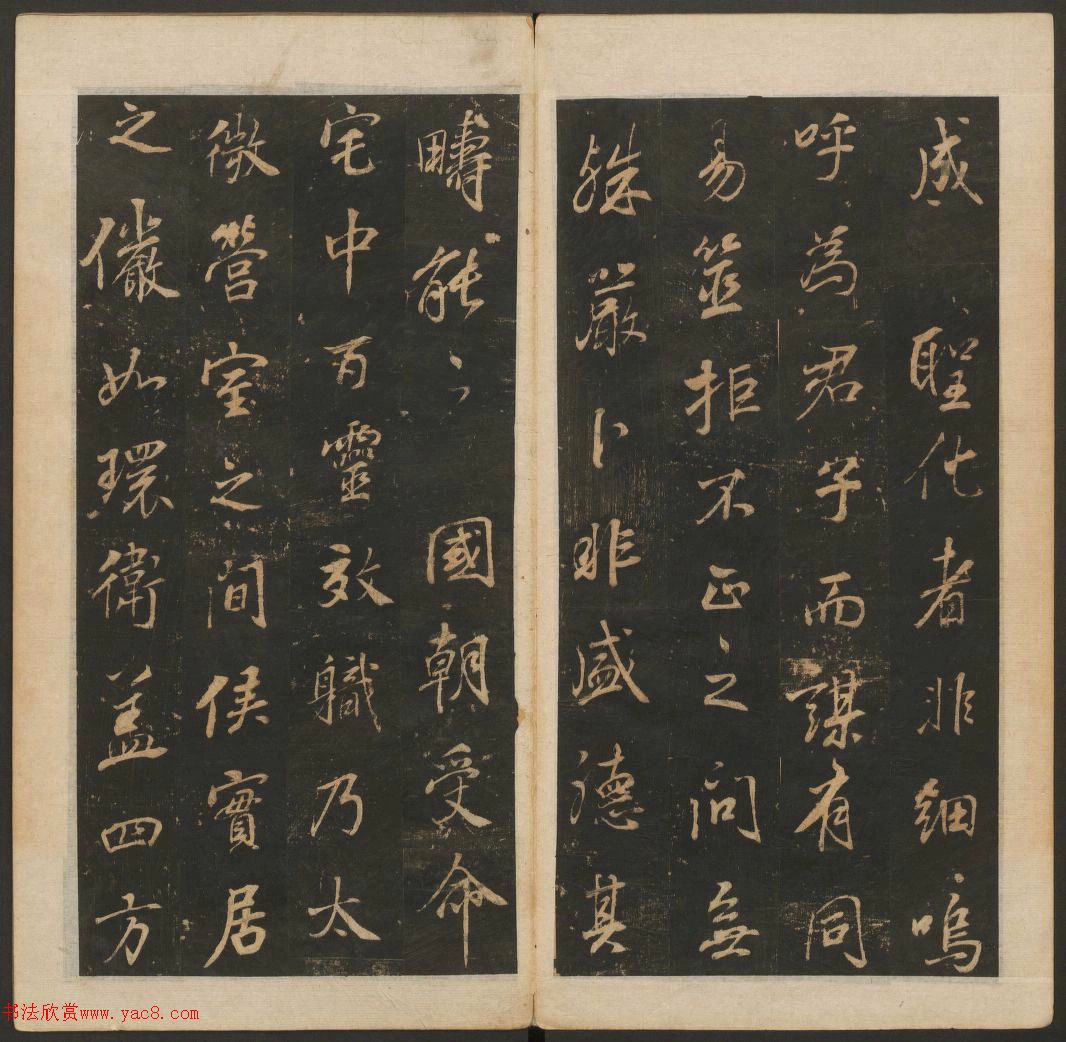 成聖化者非細嗚
呼為君子而謀有同
易筮拒不正之問無
殊嚴卜非盛德其
疇能之國朝受命
宅中百靈效職乃太
微營室之間侯實居
之儼如環衛蓋四方
书法欣赏www.yac8.com